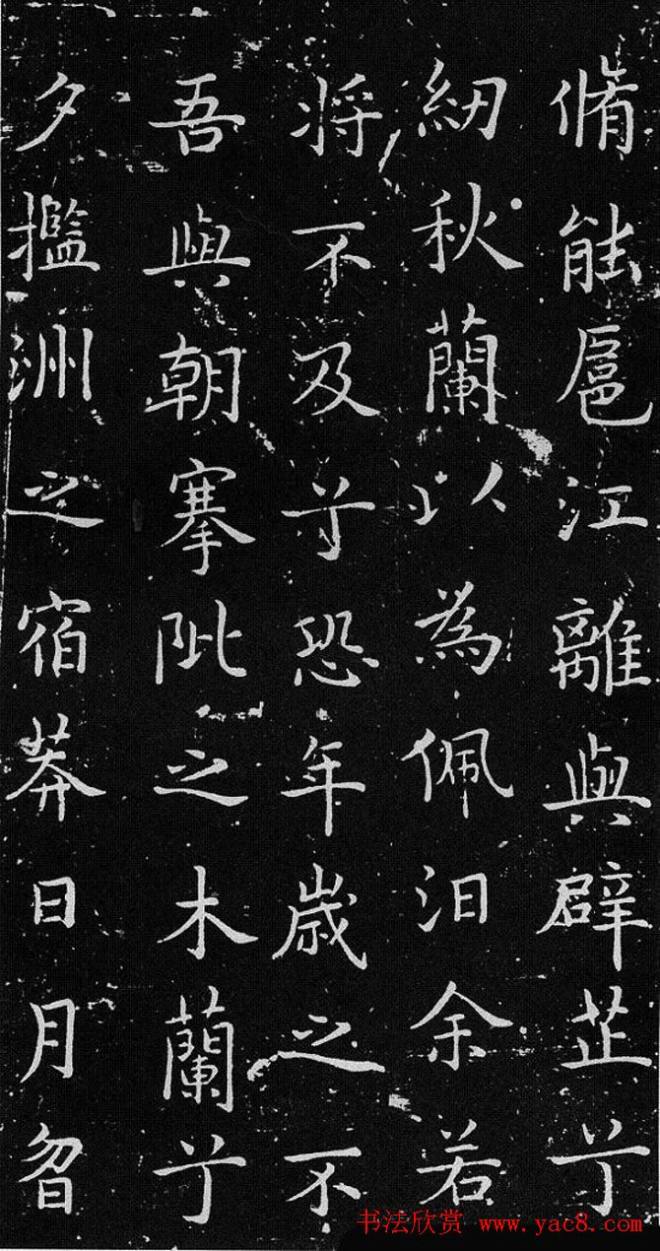 脩能扈江離與辟芷兮
紉秋蘭以為佩汨余若
将不及兮恐年歲之不
吾與朝搴阰之木蘭兮
夕㩜洲之宿莽日月曶
书法欣赏 www.yac8.com